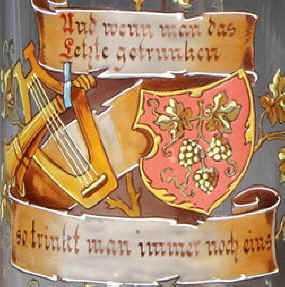 Und wenn man das
Letzte getrunken
so trinkt man immer noch eins